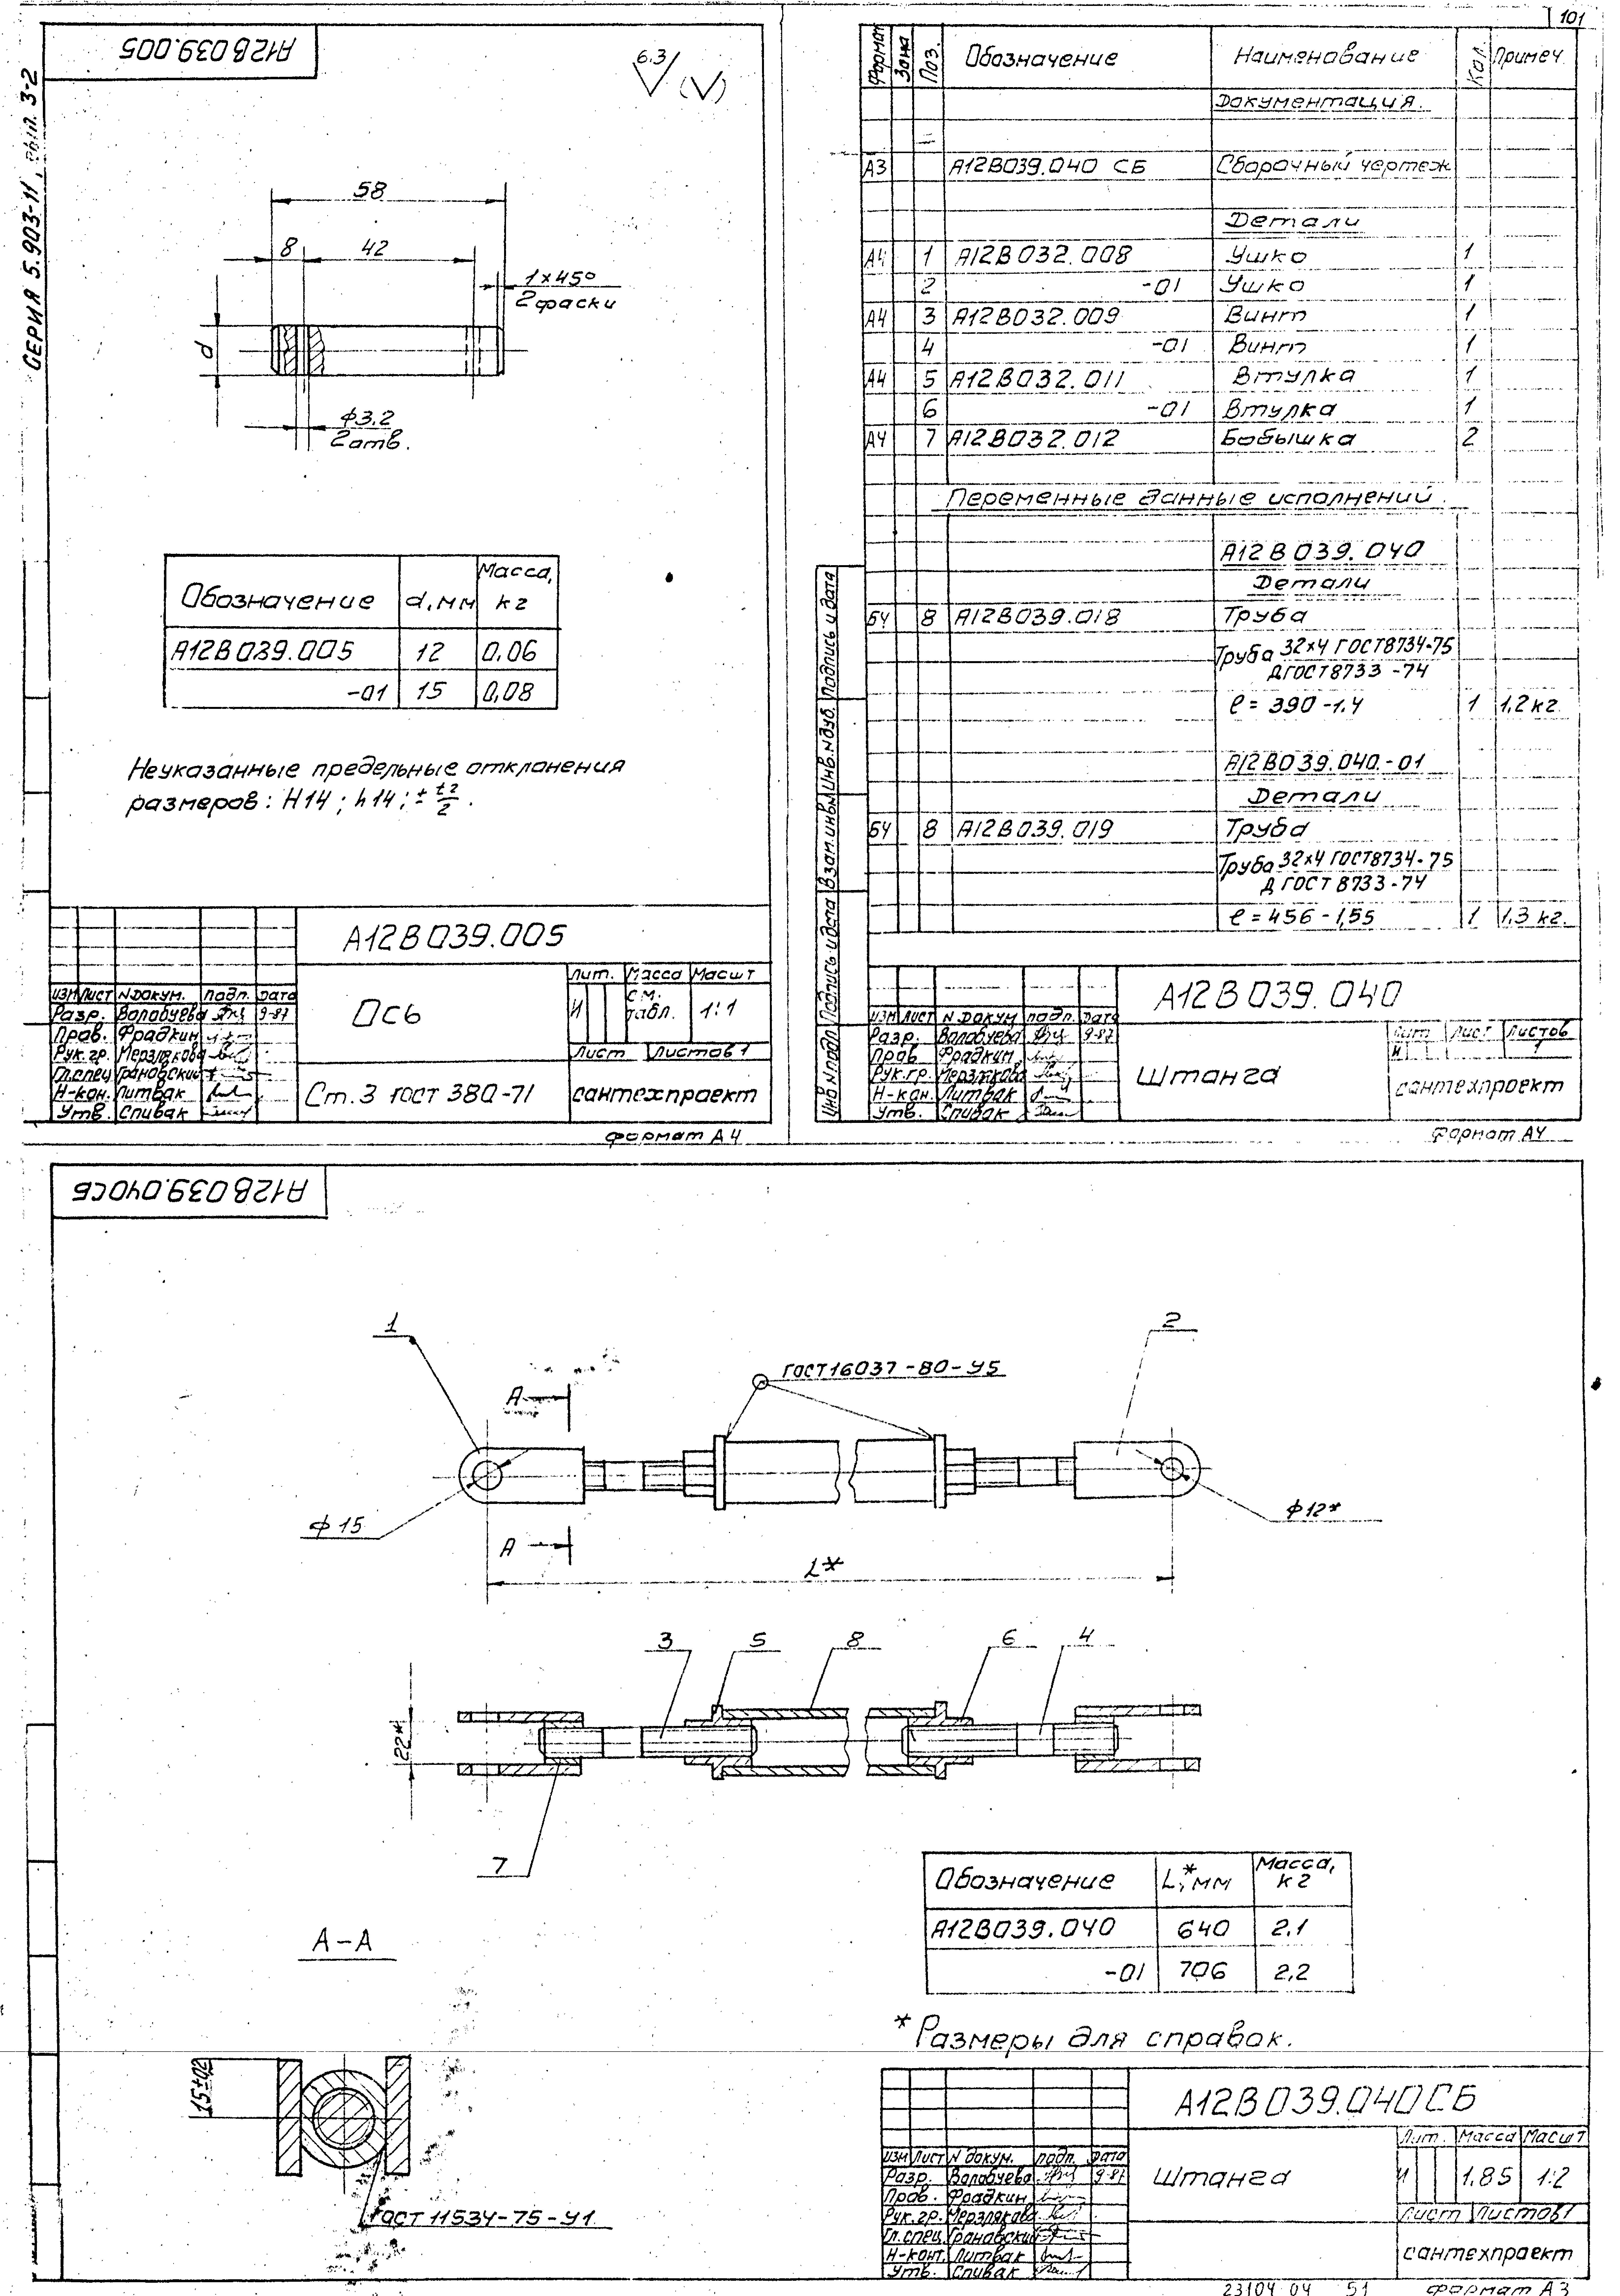 101
СЕРИЯ 5.903-11, вып. 3-2
А12В039.005
6.3
(√)
58
8
42
1×45°
2 фаски
d
ф3.2
2 отв.
Обозначение d, мм Масса, кг
А12В039.005 12 0,06
-01 15 0,08
Неуказанные предельные отклонения
размеров: H14; h14; ± t2/2.
А12В039.005
Ось
Лит. Масса Масшт
И см. табл. 1:1
Лист Листов 1
Ст.3 ГОСТ 380-71
сантехпроект
Изм Лист N докум. Подп. Дата
Разр. Валабуева 9-87
Пров. Фрадкин
Рук.гр. Мерзлякова
Гл.спец Грановский
Н-кон. Литвак
Утв. Спивак
Формат А4
Формат Зона Поз. Обозначение Наименование Кол. Примеч.
Документация.
А3 А12В039.040 СБ Сборочный чертеж
Детали
А4 1 А12В032.008 Ушко 1
2 -01 Ушко 1
А4 3 А12В032.009 Винт 1
4 -01 Винт 1
А4 5 А12В032.011 Втулка 1
6 -01 Втулка 1
А4 7 А12В032.012 Бобышка 2
Переменные данные исполнений.
А12В039.040
Детали
БЧ 8 А12В039.018 Труба
Труба 32×4 ГОСТ8734-75
Д ГОСТ8733-74
ℓ = 390-1,4 1 1,2 кг.
А12В039.040.-01
Детали
БЧ 8 А12В039.019 Труба
Труба 32×4 ГОСТ8734-75
Д ГОСТ 8733-74
ℓ = 456-1,55 1 1,3 кг.
Инв.N подл. Подпись и дата Взам.инв.N Инв.N дуб. Подпись и дата
А12В039.040
Изм Лист N докум подп. Дата
Разр. Валабуева 9-87
Пров Фрадкин
Рук.гр. Мерзлякова
Н-кон. Литвак
Утв. Спивак
Штанга
Лит Лист Листов
И 1
сантехпроект
Формат А4
А12В039.040СБ
1
2
ГОСТ16037-80-У5
А
ф 15
ф12*
А
L*
3
5
8
6
4
22*
7
Обозначение L*, мм Масса, кг
А12В039.040 640 2.1
-01 706 2,2
А-А
* Размеры для справок.
15±0,2
ГОСТ 11534-75-У1
А12В039.040СБ
Изм Лист N докум. подп. Дата
Разр. Валабуева 9-87
Пров. Фрадкин
Рук.гр. Мерзлякова
Гл.спец. Грановский
Н-конт. Литвак
Утв. Спивак
Штанга
Лит. Масса Масшт
И 1,85 1:2
Лист Листов 1
сантехпроект
23104 04 51 Формат А3